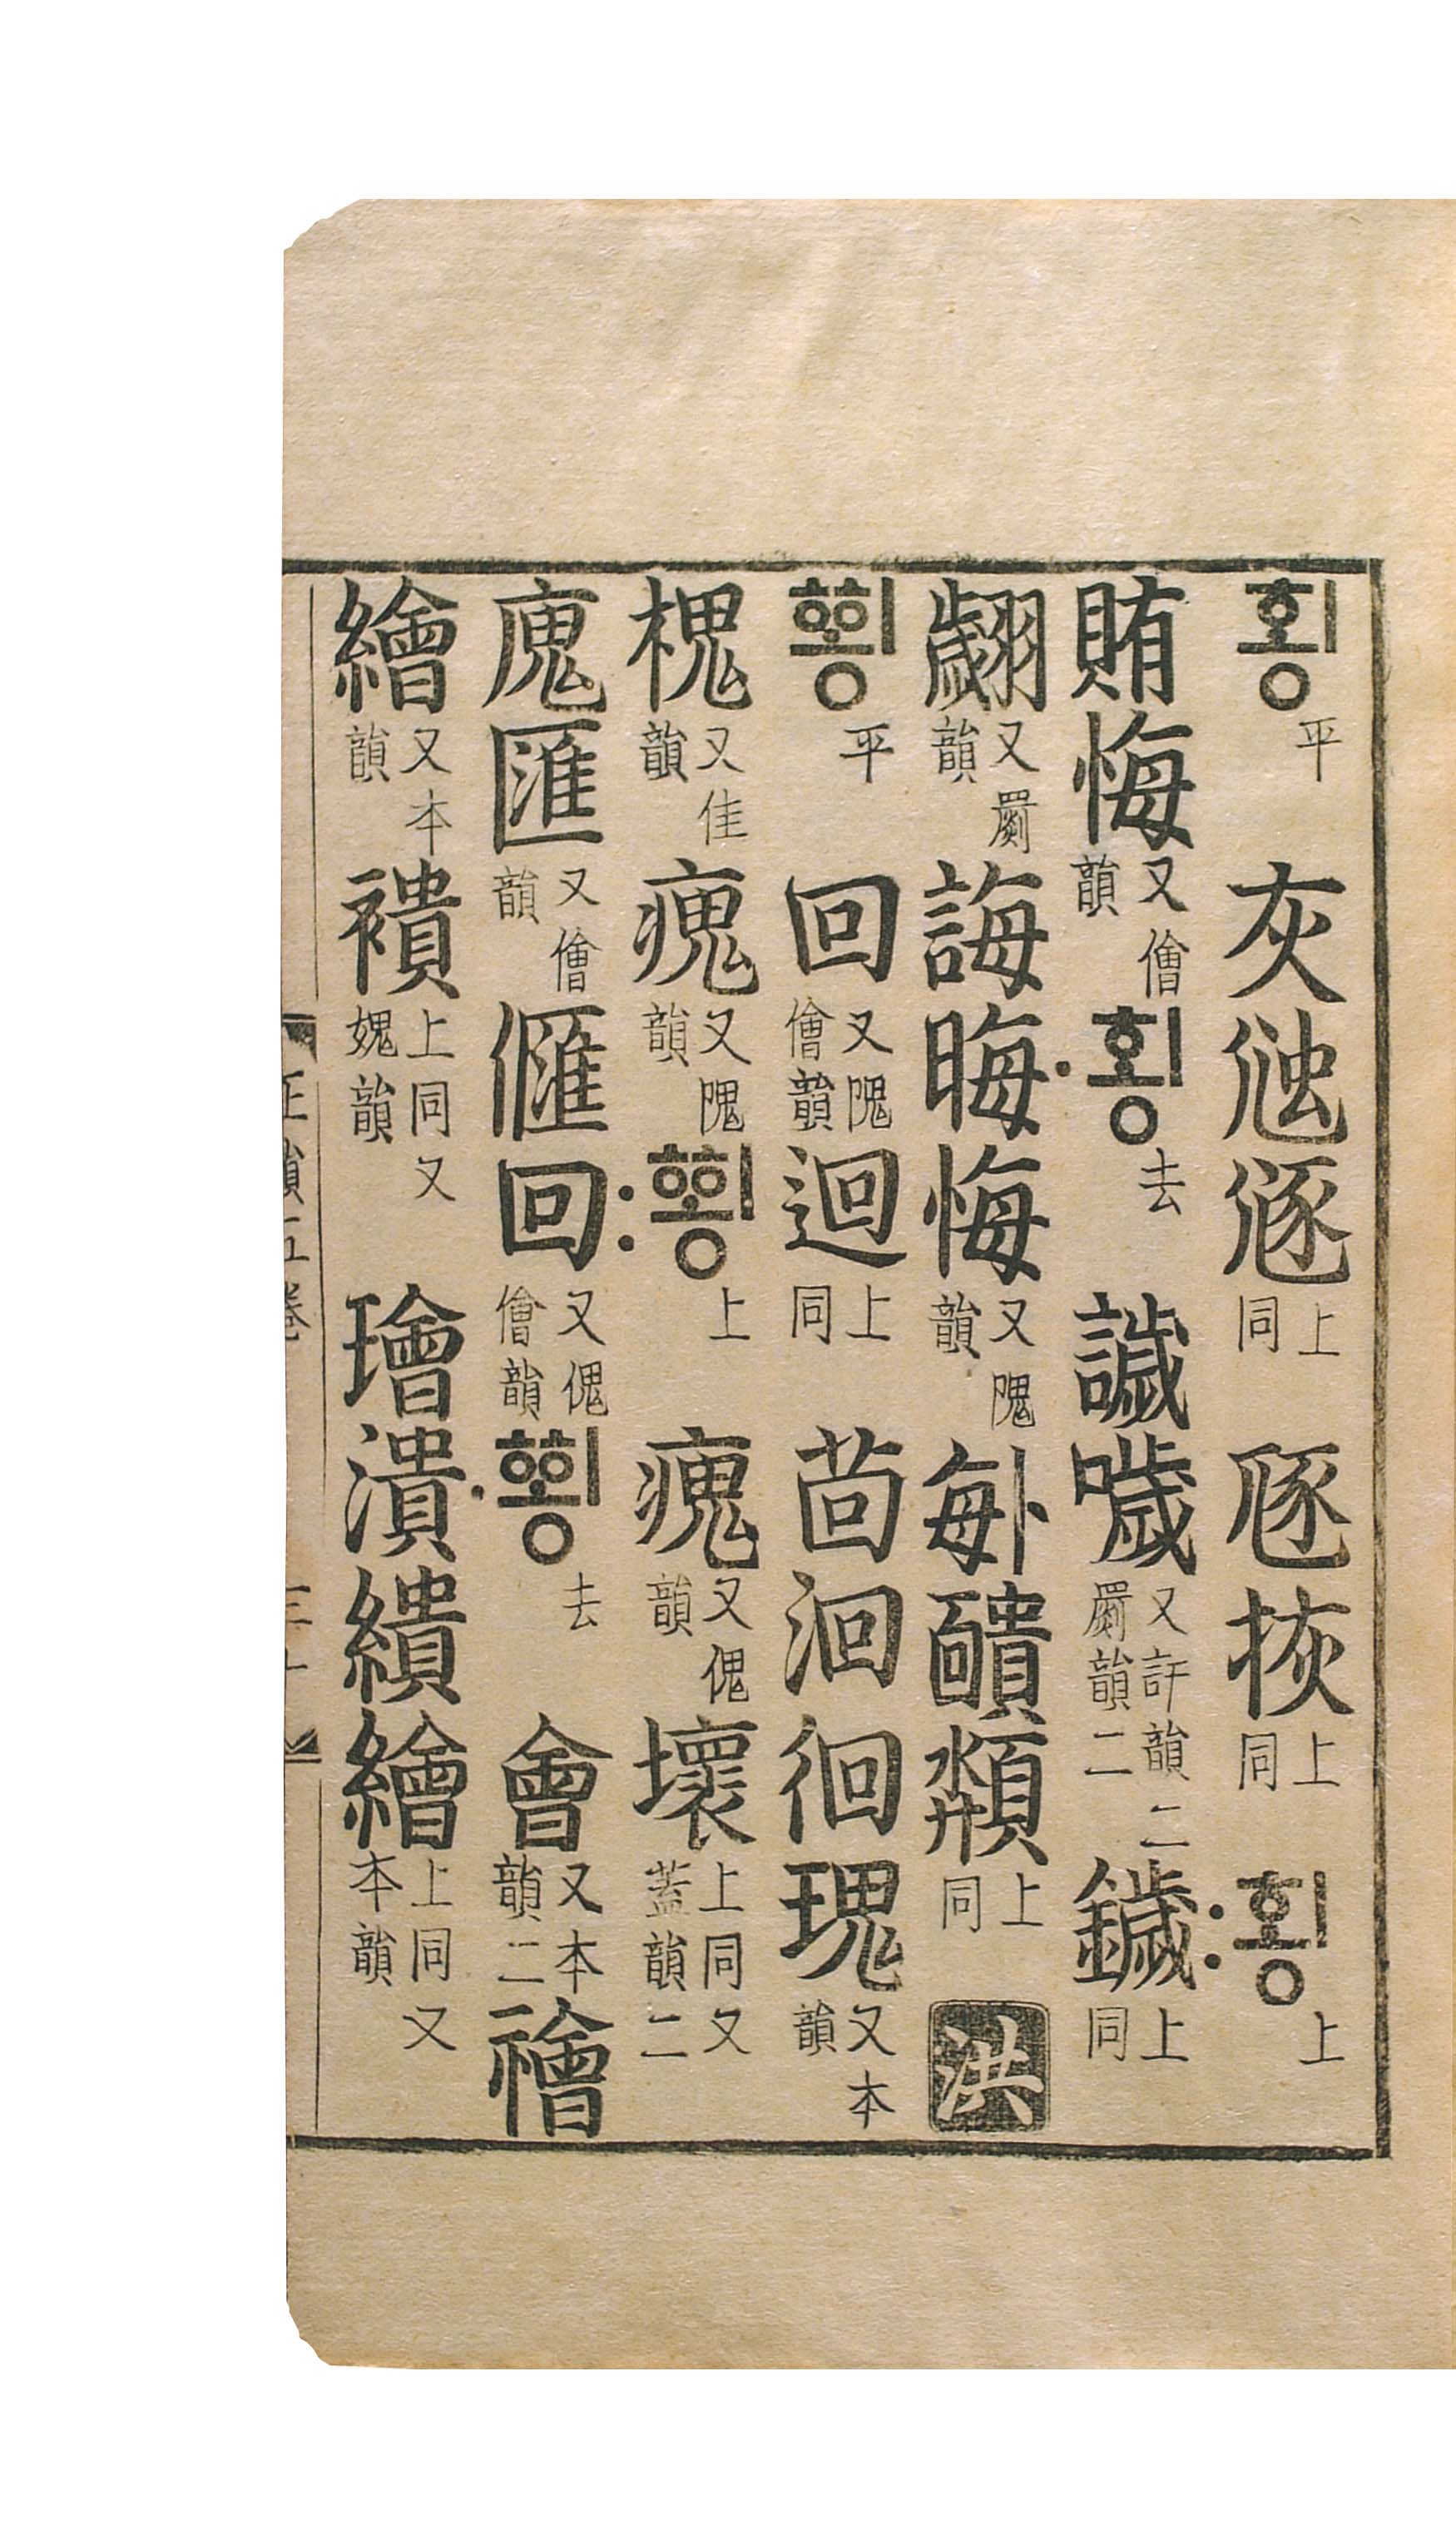 횡 平 灰 上同 豗 拻 上同 〯횡 上
賄 悔 又儈韻 〮횡 去 噦 又訐韻二罽韻二 鐬 上同
翽 又罽韻 誨 晦 悔 又隗韻 靧 頮 上同 洪
ᅘᅬᆼ 平 回 又隗儈韻 迴 上同 茴 洄 徊 瑰 又本韻
槐 又佳韻 瘣 又隗韻 〯ᅘᅬᆼ 上 瘣 又傀韻 壞 上同又蓋韻二
廆 匯 又儈韻 回 又傀儈韻 〮ᅘᅬᆼ 去 會 又本韻二 禬
繪 又本韻 上同又媿韻 璯 潰 繢 繪 上同又本韻